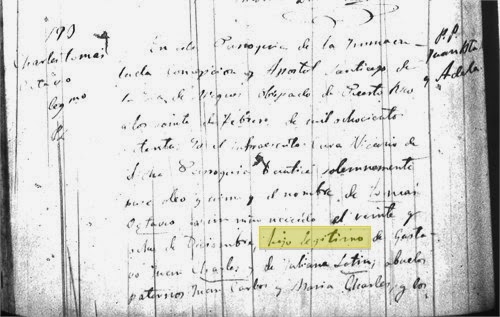 193
Charles Tomas
Octavio
legmo
P.P.
Juan Bta
y Adela
En esta Parroquia de la Inmacu
lada Concepcion y Apostol Santiago de
Obispado de Puerto Rico
a los veinte de Febrero de mil ochocientos
Yo el infraescrito Cura Vicario de
dicha Parroquia bautice solemnemente
puse oleo y crisma y el nombre de Tomas
Octavio nacido el veinte y
de Diciembre, hijo legitimo de Gusta
vo Juan Charles y de Juliana Latin, abuelos
paternos Juan Carlos y Maria Charles, y los